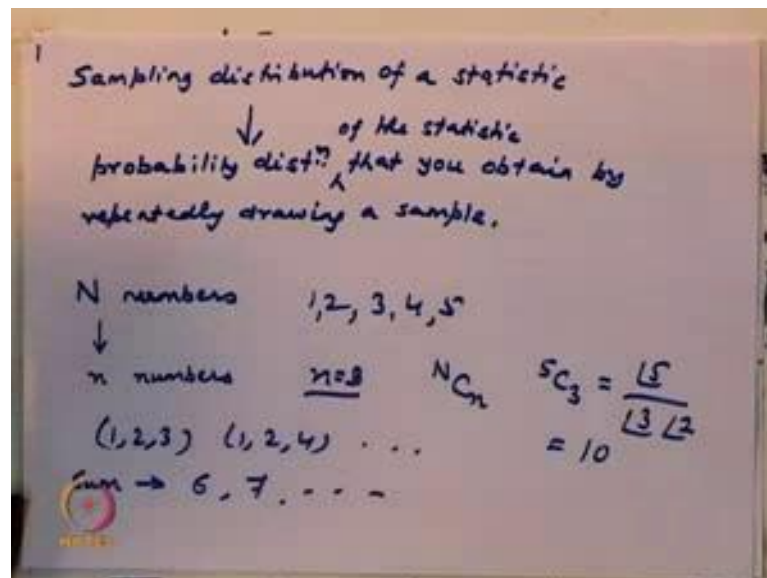 1
Sampling distribution of a statistic
↓ of the statistic
probability distⁿ. ^ that you obtain by
repeatedly drawing a sample.
N numbers 1,2,3,4,5
↓
n numbers n=3 ᴺCₙ ⁵C₃ = ⌊5 / ⌊3 ⌊2
(1,2,3) (1,2,4) . . . = 10
Sum → 6, 7, - - - -